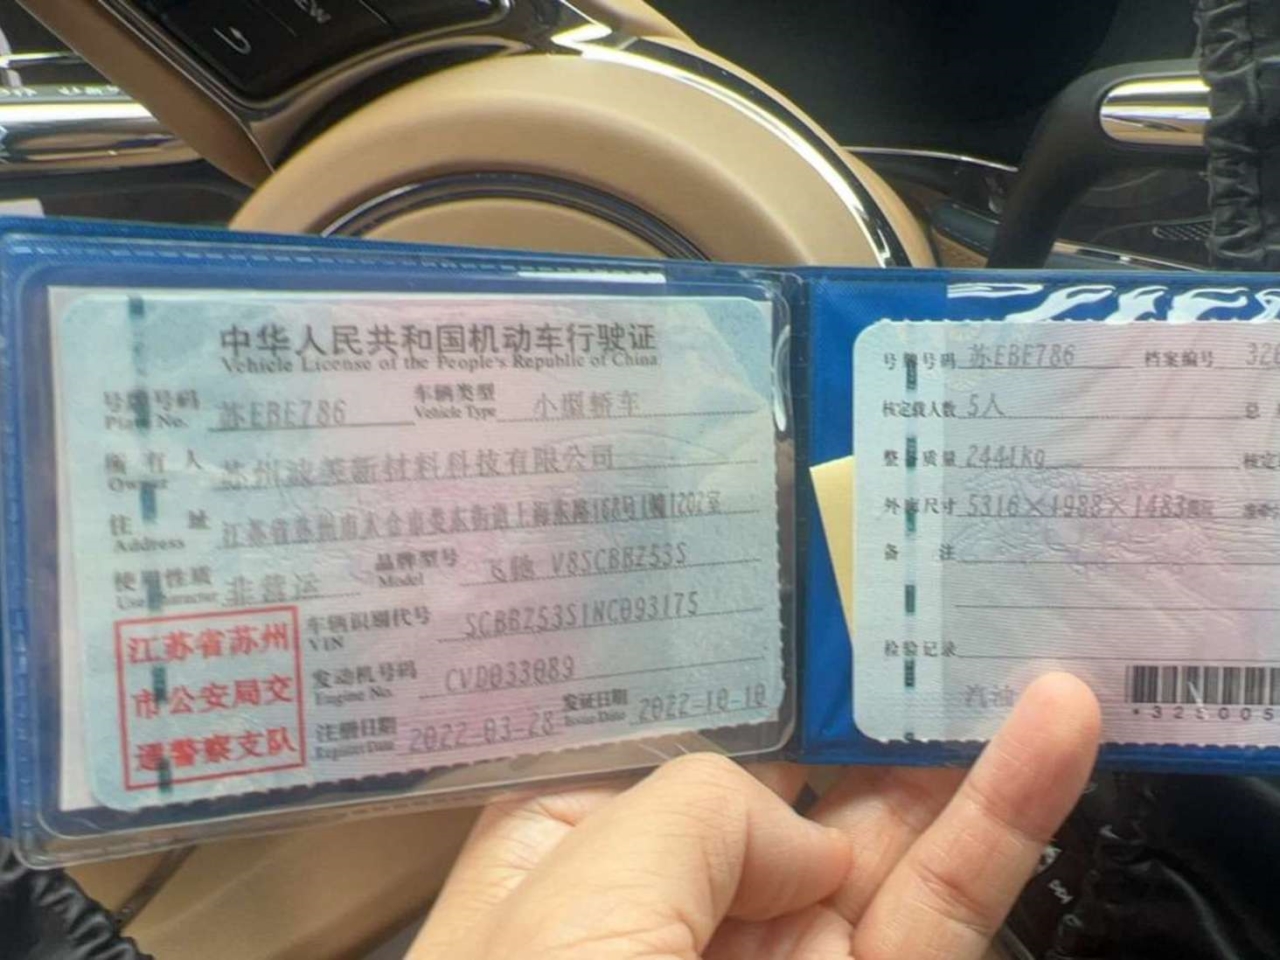 中华人民共和国机动车行驶证
Vehicle License of the People's Republic of China
号牌号码 苏EBE786 车辆类型 小型轿车
Plate No. Vehicle Type
所有人 苏州波英新材料科技有限公司
Owner
住址 江苏省苏州市太仓市娄东街道上海东路168号1幢1202室
Address
使用性质 非营运 品牌型号 飞驰 V8SCBBZ53S
Use Character Model
车辆识别代号 SCBBZ53S1NC093175
VIN
发动机号码 CVD033089
Engine No.
注册日期 2022-03-28 发证日期 2022-10-10
Register Date Issue Date
江苏省苏州
市公安局交
通警察支队
号牌号码 苏EBE786 档案编号 320
核定载人数 5人 总
整备质量 2441kg 核定
外廓尺寸 5316×1988×1483mm
备注
检验记录
汽油
*325005